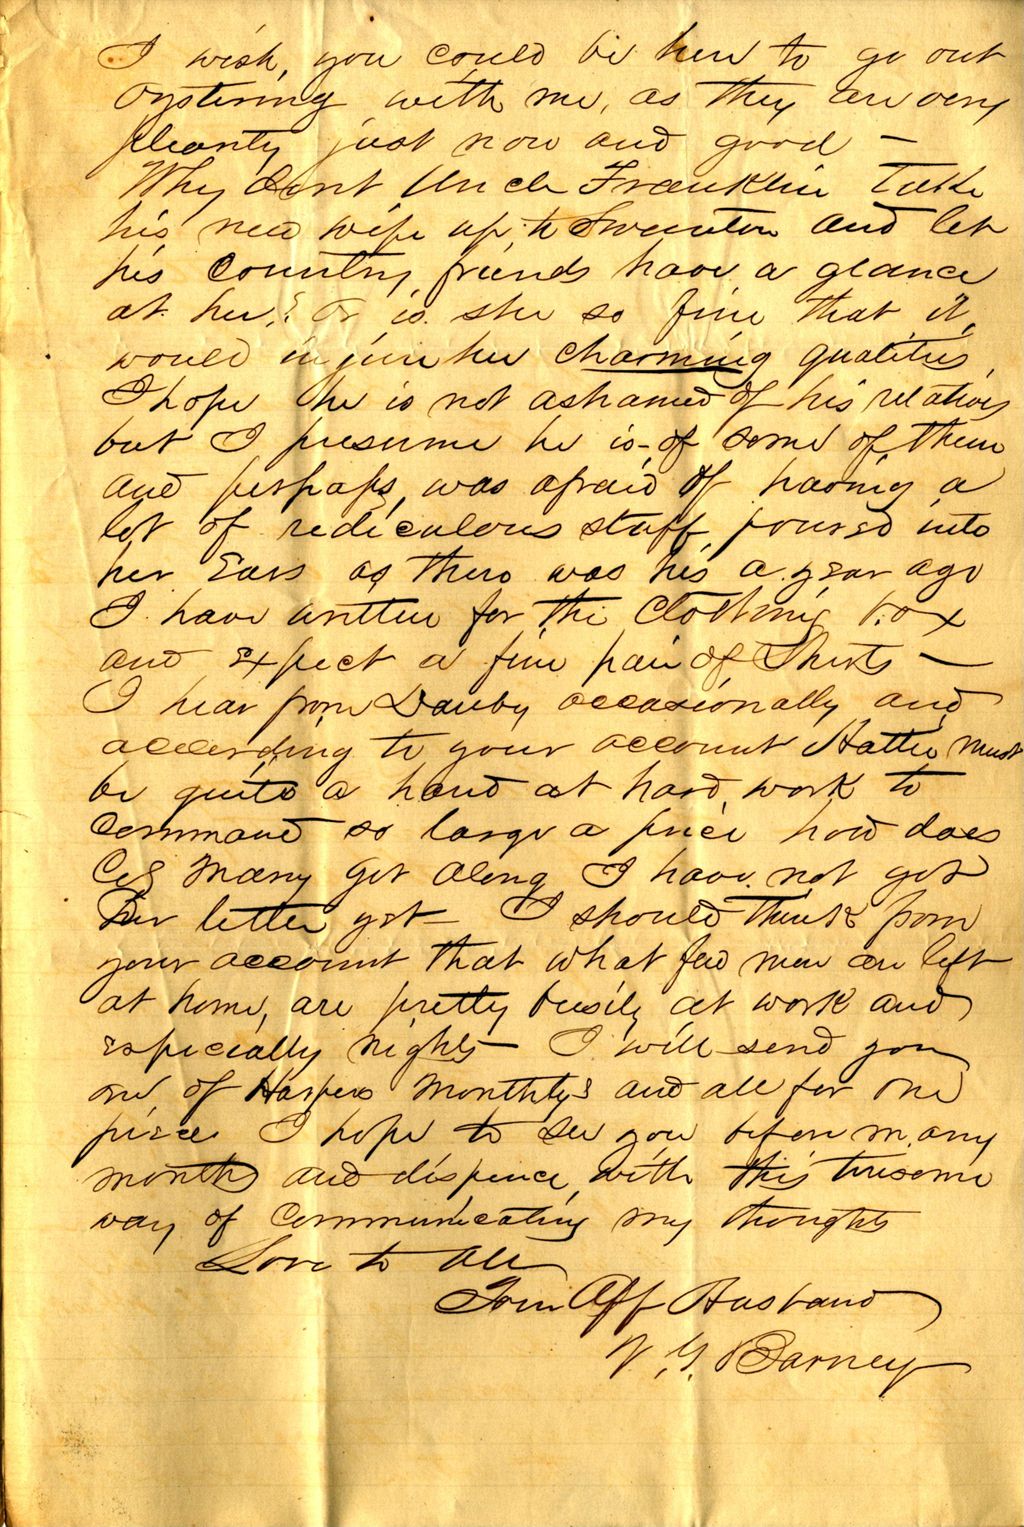 I wish, you could be here to go out
oystering with me, as they are very
pleanty just now and good —
Why dont Uncle Franklin take
his new wife up to Swanton and let
his Country friends have a glance
at her,? Or is she so fine that it
would injure her charming qualities
I hope he is not ashamed of his relatives
but I presume he is - of some of them
and perhaps, was afraid of having a
lot of rediculous stuff poured into
her Ears as there was his a year ago
I have written for the Clothing box
and expect a fine pair of Shirts —
I hear from Danby occasionally and
according to your account Hattie must
be quite a hand at hard work to
command so large a price how does
Mary get along I have not got
her letter yet — I should think from
your account that what few men are left
at home, are pretty busily at work and
especially nights — I will send you
one of Harpers Monthlys and all for one
piece I hope to see you before many
months and dispence with this tiresome
way of communicating my thoughts
Love to All
Your Aff Husband
V. G. Barney